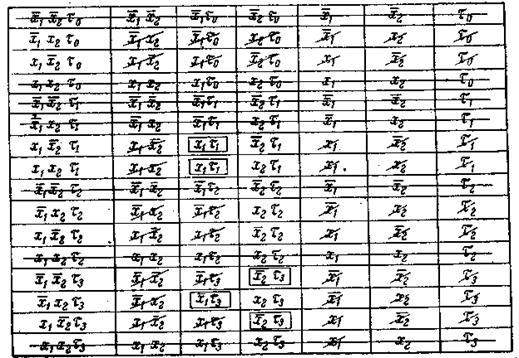 x̄₁ x̄₂ τ₀ x̄₁ x̄₂ x̄₁ τ₀ x̄₂ τ₀ x̄₁ x̄₂ τ₀
x̄₁ x₂ τ₀ x̄₁ x₂ x̄₁ τ₀ x₂ τ₀ x̄₁ x₂ τ₀
x₁ x̄₂ τ₀ x₁ x̄₂ x₁ τ₀ x̄₂ τ₀ x₁ x̄₂ τ₀
x₁ x₂ τ₀ x₁ x₂ x₁ τ₀ x₂ τ₀ x₁ x₂ τ₀
x̄₁ x̄₂ τ₁ x̄₁ x̄₂ x̄₁ τ₁ x̄₂ τ₁ x̄₁ x̄₂ τ₁
x̄₁ x₂ τ₁ x̄₁ x₂ x̄₁ τ₁ x₂ τ₁ x̄₁ x₂ τ₁
x₁ x̄₂ τ₁ x₁ x̄₂ x₁ τ₁ x̄₂ τ₁ x₁ x̄₂ τ₁
x₁ x₂ τ₁ x₁ x₂ x₁ τ₁ x₂ τ₁ x₁ x₂ τ₁
x̄₁ x̄₂ τ₂ x̄₁ x̄₂ x̄₁ τ₂ x̄₂ τ₂ x̄₁ x̄₂ τ₂
x̄₁ x₂ τ₂ x̄₁ x₂ x̄₁ τ₂ x₂ τ₂ x̄₁ x₂ τ₂
x₁ x̄₂ τ₂ x₁ x̄₂ x₁ τ₂ x̄₂ τ₂ x₁ x̄₂ τ₂
x₁ x₂ τ₂ x₁ x₂ x₁ τ₂ x₂ τ₂ x₁ x₂ τ₂
x̄₁ x̄₂ τ₃ x̄₁ x̄₂ x̄₁ τ₃ x̄₂ τ₃ x̄₁ x̄₂ τ₃
x̄₁ x₂ τ₃ x̄₁ x₂ x̄₁ τ₃ x₂ τ₃ x̄₁ x₂ τ₃
x₁ x̄₂ τ₃ x₁ x̄₂ x₁ τ₃ x̄₂ τ₃ x₁ x̄₂ τ₃
x₁ x₂ τ₃ x₁ x₂ x₁ τ₃ x₂ τ₃ x₁ x₂ τ₃